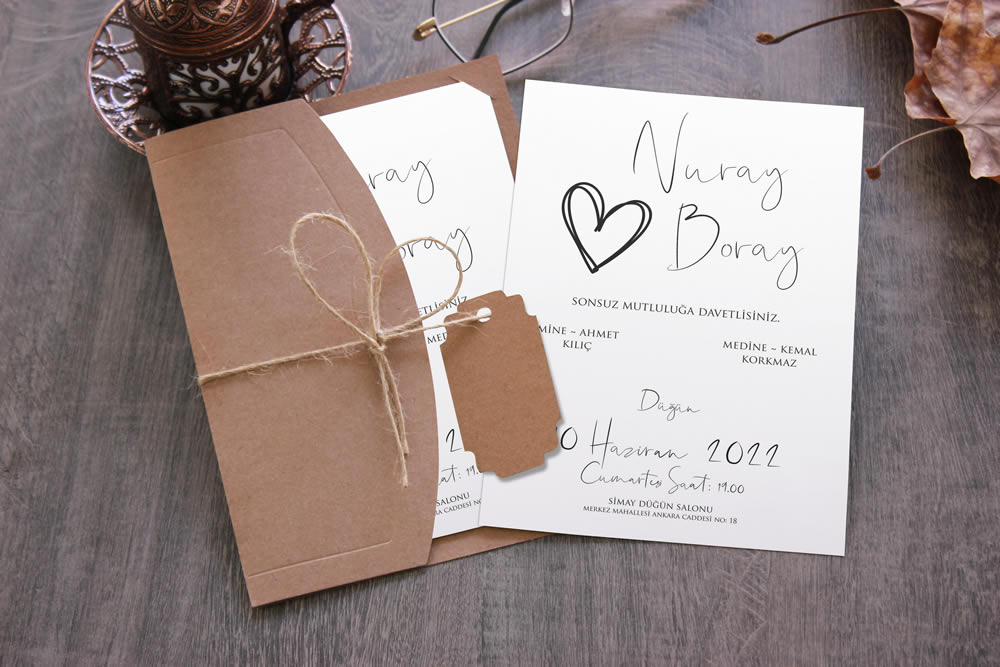 Nuray
Boray
SONSUZ MUTLULUĞA DAVETLİSİNİZ.
MİNE ~ AHMET
KILIÇ
MEDİNE ~ KEMAL
KORKMAZ
Düğün
0 Haziran 2022
Cumartesi Saat: 19.00
SİMAY DÜĞÜN SALONU
MERKEZ MAHALLESİ ANKARA CADDESİ NO: 18
ray
oray
VETLİSİNİZ.
MED
2
at: 19.00
SALONU
ARA CADDESİ NO: 18